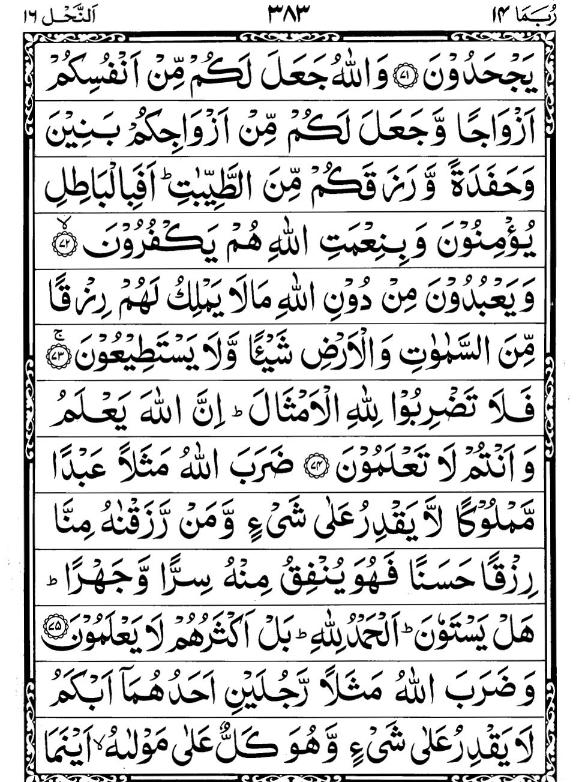 رُبَمَا ۱۴ ۳۸۳ اَلنَّحْل ۱۶
يَجْحَدُوْنَ ﴿۷۱﴾ وَاللّٰهُ جَعَلَ لَكُمْ مِّنْ اَنْفُسِكُمْ
اَزْوَاجًا وَّجَعَلَ لَكُمْ مِّنْ اَزْوَاجِكُمْ بَنِيْنَ
وَحَفَدَةً وَّرَزَقَكُمْ مِّنَ الطَّيِّبٰتِ ؕ اَفَبِالْبَاطِلِ
يُؤْمِنُوْنَ وَبِنِعْمَتِ اللّٰهِ هُمْ يَكْفُرُوْنَ ﴿۷۲﴾ ۙ
وَيَعْبُدُوْنَ مِنْ دُوْنِ اللّٰهِ مَالَا يَمْلِكُ لَهُمْ رِزْقًا
مِّنَ السَّمٰوٰتِ وَالْاَرْضِ شَيْـًٔا وَّلَا يَسْتَطِيْعُوْنَ ﴿۷۳﴾ ۚ
فَلَا تَضْرِبُوْا لِلّٰهِ الْاَمْثَالَ ؕ اِنَّ اللّٰهَ يَعْلَمُ
وَاَنْتُمْ لَا تَعْلَمُوْنَ ﴿۷۴﴾ ضَرَبَ اللّٰهُ مَثَلًا عَبْدًا
مَّمْلُوْكًا لَّا يَقْدِرُ عَلٰى شَيْءٍ وَّمَنْ رَّزَقْنٰهُ مِنَّا
رِزْقًا حَسَنًا فَهُوَ يُنْفِقُ مِنْهُ سِرًّا وَّجَهْرًا ؕ
هَلْ يَسْتَوٗنَ ؕ اَلْحَمْدُ لِلّٰهِ ؕ بَلْ اَكْثَرُهُمْ لَا يَعْلَمُوْنَ ﴿۷۵﴾
وَضَرَبَ اللّٰهُ مَثَلًا رَّجُلَيْنِ اَحَدُهُمَاۤ اَبْكَمُ
لَا يَقْدِرُ عَلٰى شَيْءٍ وَّهُوَ كَلٌّ عَلٰى مَوْلٰىهُ ۙ اَيْنَمَا